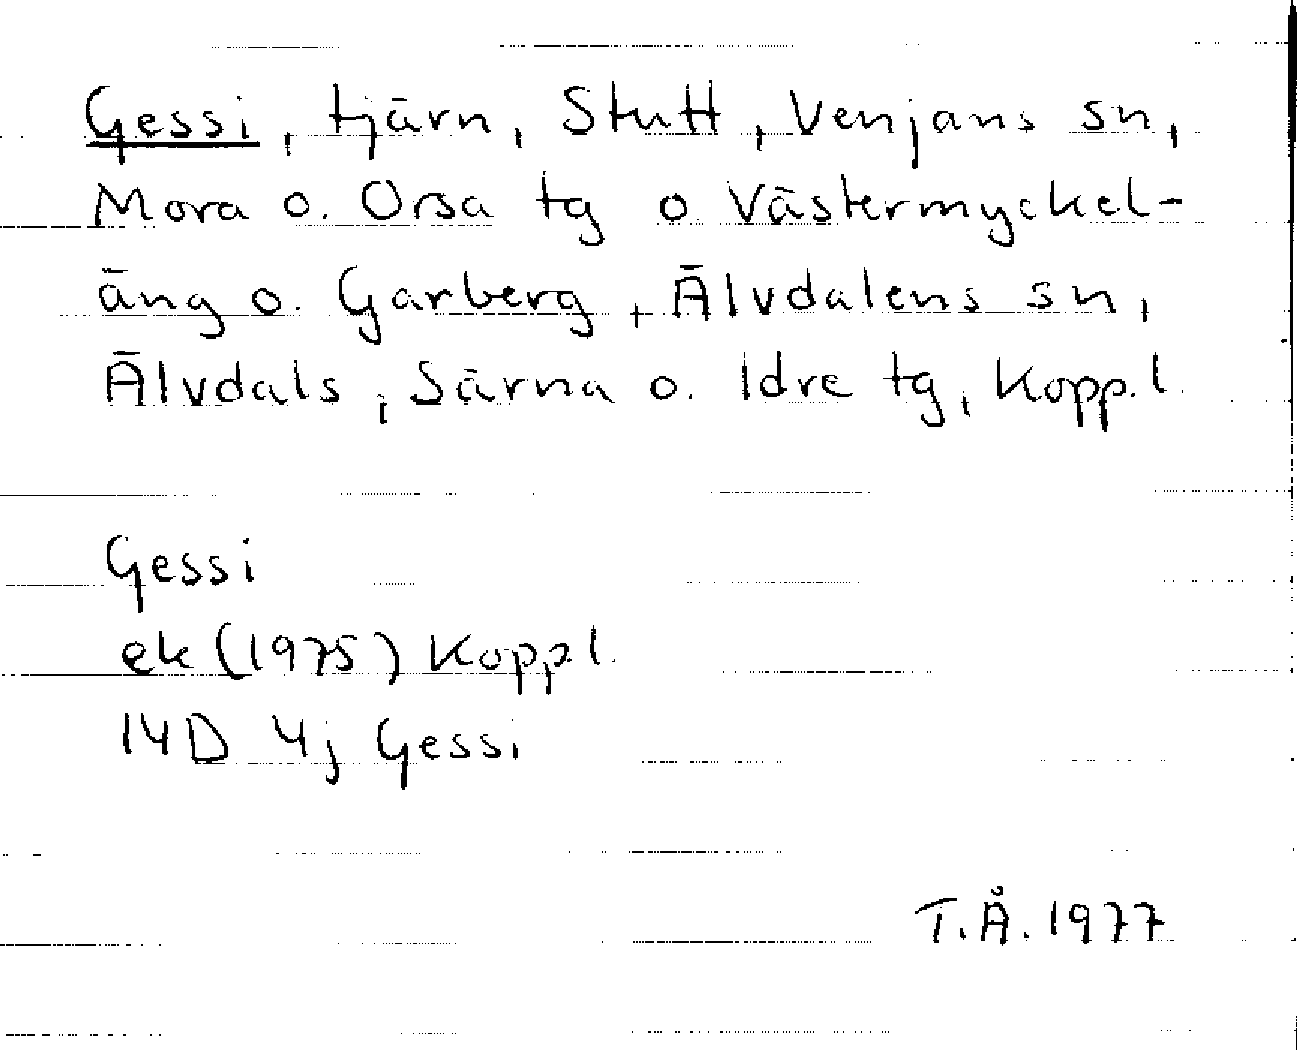 Gessi, tjärn, Stutt, Venjans sn,
Mora o. Orsa tg o Västermyckel-
äng o. Garberg, Älvdalens sn,
Älvdals, Särna o. Idre tg, Kopp.l.
Gessi
ek (1975) Kopp.l.
14D 4j Gessi
T.Å. 1977